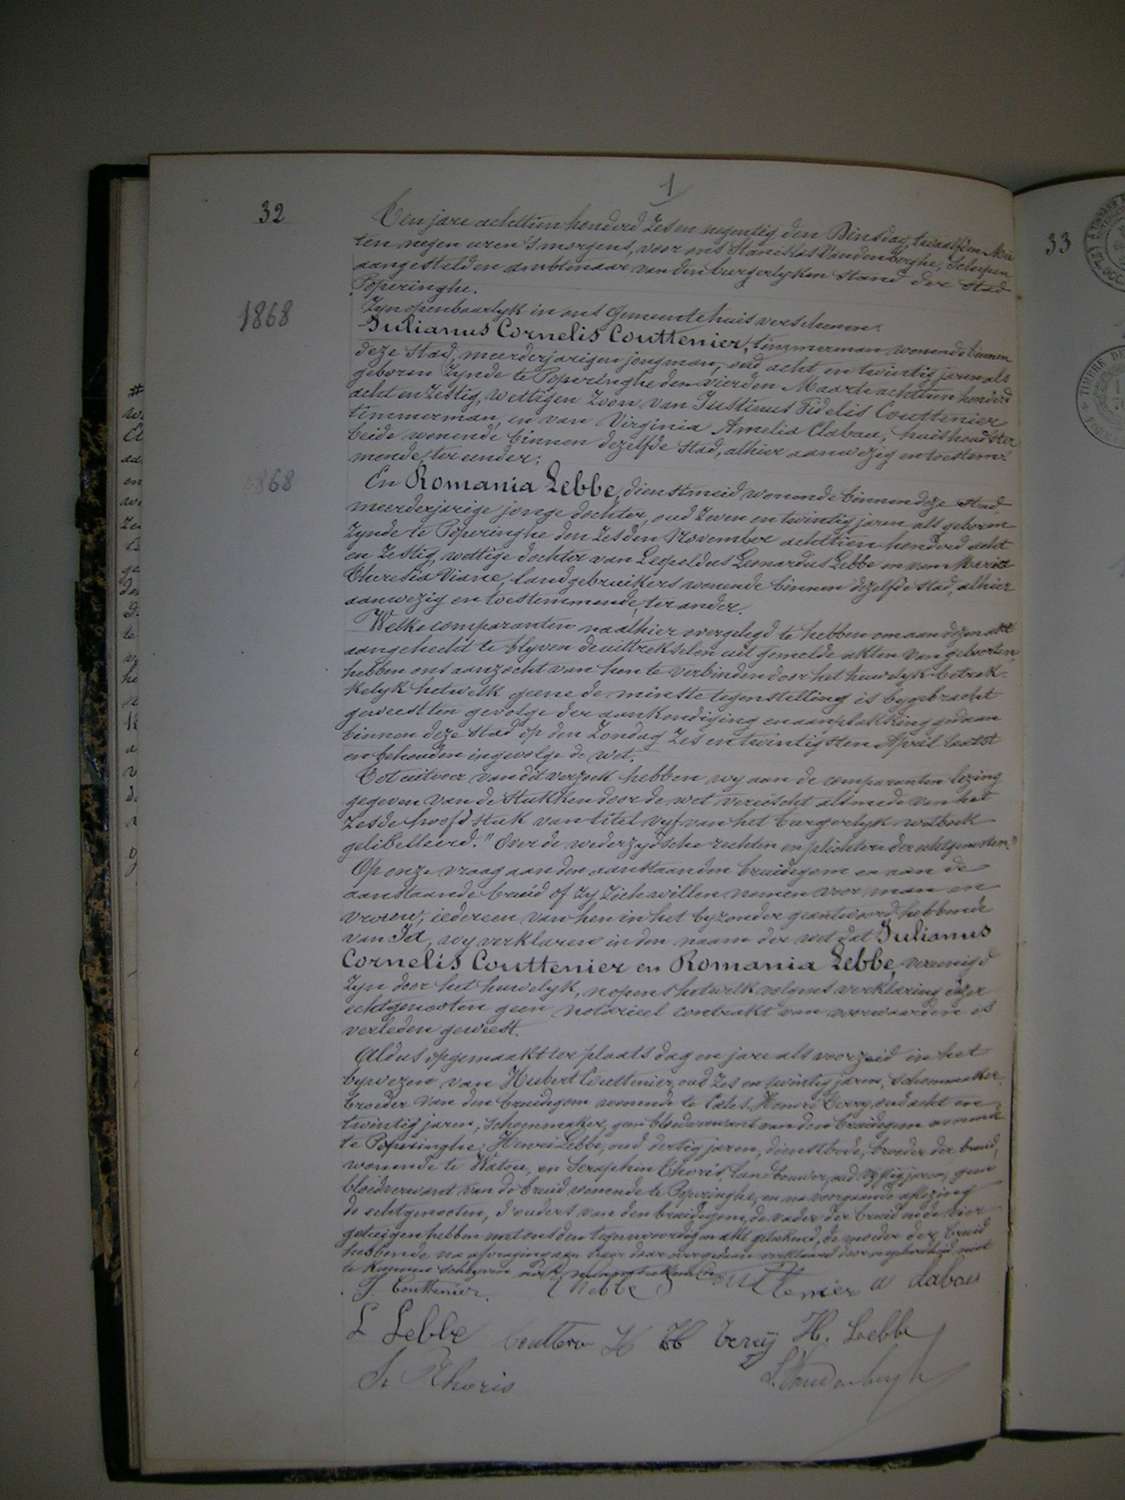 1
32
Ten jare achttien honderd zes en negentig den Dinsdag, twaalfden Mei
ten negen uren 's morgens, voor ons Stanislas Vandenberghe, Schepen
aangestelden ambtenaar van den burgerlyken stand der Stad
Poperinghe.
Zyn openbaarlyk in ons gemeentehuis verschenen:
1868
Julianus Cornelis Couttenier, timmerman, wonende binnen
deze stad, meerderjarigen jongman, oud acht en twintig jaren als
geboren zynde te Poperinghe den vierden Maart achttien honderd
acht en zestig, wettigen zoon van Justinus Fidelis Couttenier
timmerman, en van Virginia Amelia Clabau, huishoudster
beide wonende binnen dezelfde stad, alhier aanwezig en toestem-
mende, ter eender;
1868
En Romania Lebbe, dienstmeid wonende binnen deze stad,
meerderjarige jonge dochter, oud zeven en twintig jaren als geboren
zynde te Poperinghe den zesden November achttien honderd acht
en zestig, wettige dochter van Leopoldus Leonardus Lebbe en van Maria
Theresia Viane, landgebruikers wonende binnen dezelfde stad, alhier
aanwezig en toestemmende, ter ander.
Welke comparanten na alhier overgelegd te hebben om aan dezen akt
aangehecht te blyven de uittrekselen uit gemelde akten van geboorten,
hebben ons aanzocht van hen te verbinden door het huwelyk betrek-
kelyk hetwelk geene de minste tegenstelling is bygebracht
geweest ten gevolge der aankondiging en aanplakking gedaan
binnen deze stad op den Zondag zes en twintigsten April laatst
en behouden ingevolge de wet.
Tot uitvoer van dit verzoek hebben wy aan de comparanten lezing
gegeven van de stukken door de wet vereischt alsmede van het
zesde hoofdstuk van titel vyf van het burgerlyk wetboek
gelibelleerd: "Over de wederzydsche rechten en plichten der echtgenooten."
Op onze vraag aan den aanstaanden bruidegom en aan de
aanstaande bruid of zy zich willen nemen voor man en
vrouw, iedereen van hen in het byzonder geantwoord hebbende
van Ja, wy verklaren in den naam der wet dat Julianus
Cornelis Couttenier en Romania Lebbe, vereenigd
zyn door het huwelyk, nopens hetwelk volgens verklaring dezer
echtgenooten geen notarieel contrakt van voorwaarden is
verleden geweest.
Aldus opgemaakt ter plaats dag en jare als voorzeid in het
bywezen van Hubert Couttenier, oud zes en twintig jaren, schoenmaker
broeder van den bruidegom wonende te Honoré Verry, oud acht en
twintig jaren, schoenmaker, geen bloedverwant van den bruidegom wonende
te Poperinghe; Henri Lebbe, oud dertig jaren, dienstbode, broeder der bruid,
wonende te Watou, en Seraphin Thoris, landbouwer, oud vyftig jaren, geen
bloedverwant van de bruid wonende te Poperinghe, en na voorgaande aflezing
de echtgenooten, d'ouders van den bruidegom, de vader der bruid en de vier
getuigen hebben met ons den tegenwoordigen akt geteekend, de moeder der bruid
hebbende, na afvraging aan haar daar over gedaan verklaard door ongeleerdheid niet
te kunnen schryven
J Couttenier. Lebbe Couttenier Clabau
L Lebbe H Verry H. Lebbe
Thoris Vandenberghe
33